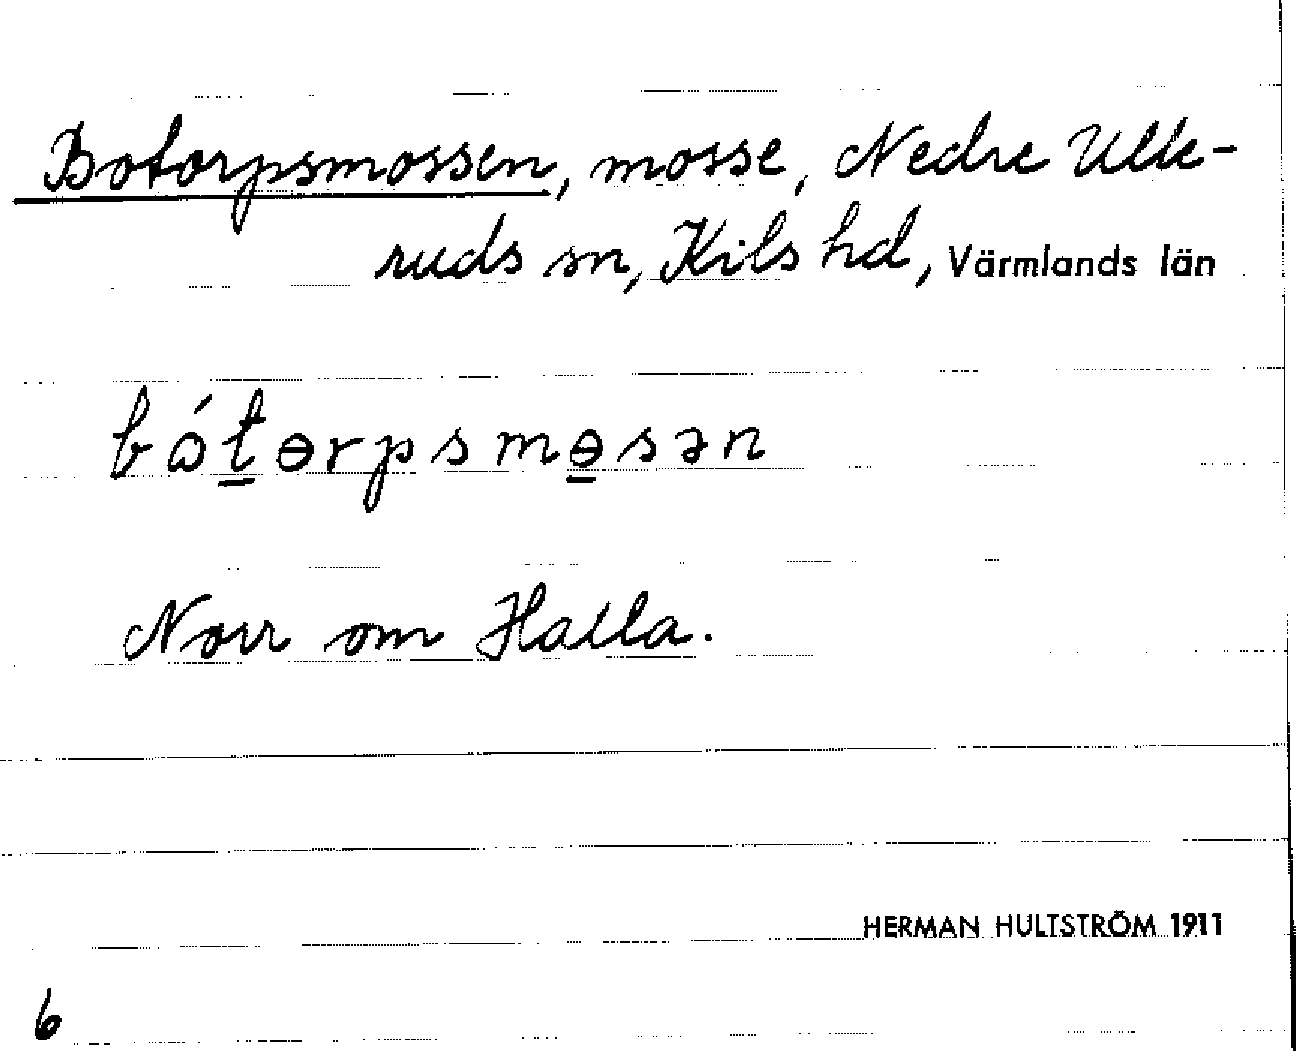 Botorpsmossen, mosse, Nedre Ulle-
ruds sn, Kils hd, Värmlands län
bó̱terpsmɵsən
Norr om Halla.
HERMAN HULTSTRÖM 1911
6